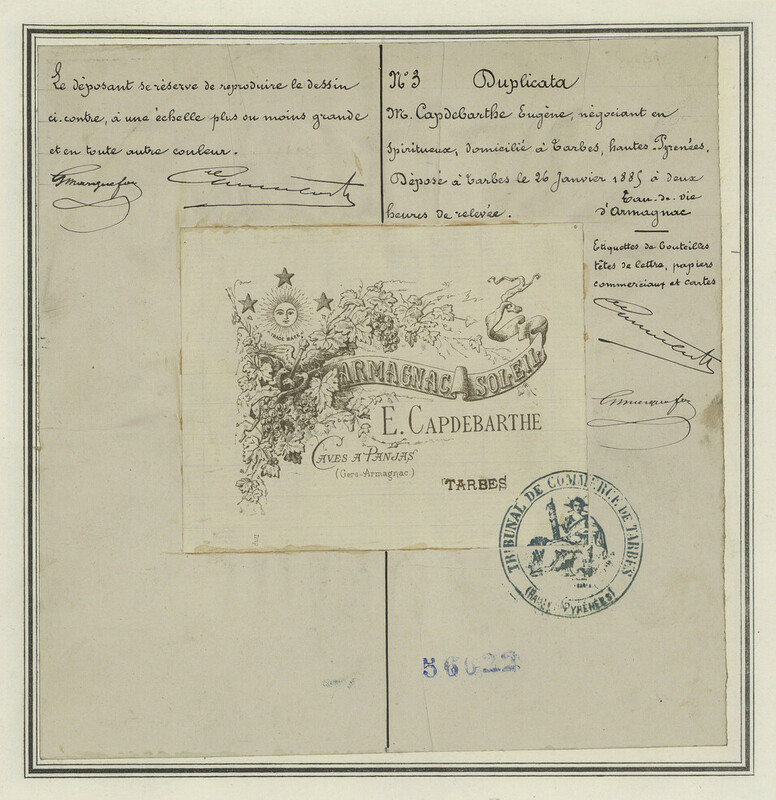 Le déposant se réserve de reproduire le dessin
ci-contre, à une échelle plus ou moins grande
et en toute autre couleur.
N° 3 Duplicata
M. Capdebarthe Eugène, négociant en
spiritueux, domicilié à Tarbes, hautes-Pyrénées,
Déposé à Tarbes le 26 Janvier 1885 à deux
heures de relevée.
Eau-de-vie
d'Armagnac
Etiquettes de bouteilles
têtes de lettre, papiers
commerciaux et cartes
TRADE MARK
ARMAGNAC SOLEIL
E. CAPDEBARTHE
CAVES A PANJAS
(Gers-Armagnac)
TARBES
TRIBUNAL DE COMMERCE DE TARBES
(HAUTES PYRÉNÉES)
56022